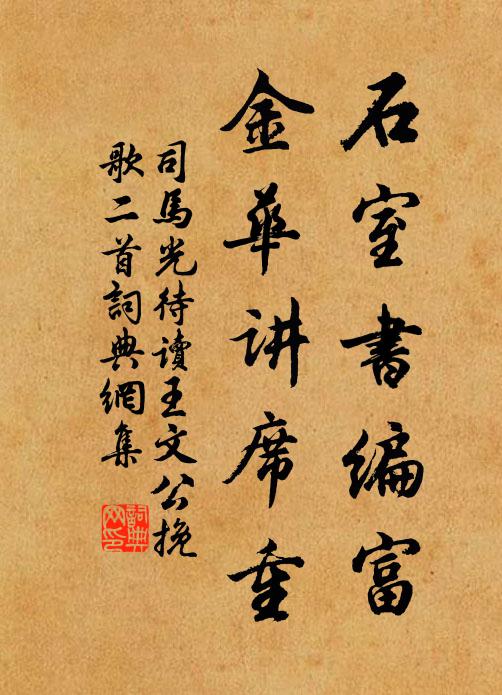 石室書編富
金華讲席重
司馬光待讀王文公挽
歌二首詞典網集
詞典网印